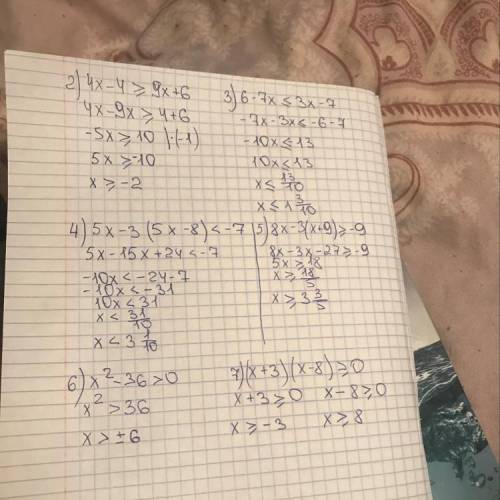 2) 4x-4 ≥ 9x+6
4x-9x ≥ 4+6
-5x ≥ 10 |·(-1)
5x ≥ -10
x ≥ -2
3) 6-7x ≤ 3x-7
-7x-3x ≤ -6-7
-10x ≤ 13
10x ≤ 13
x ≤ 13/10
x ≤ 1 3/10
4) 5x-3(5x-8) < -7
5x-15x+24 < -7
-10x < -24-7
-10x < -31
10x < 31
x < 31/10
x < 3 1/10
5) 8x-3(x+9) ≥ -9
8x-3x-27 ≥ -9
5x ≥ 18
x ≥ 18/5
x ≥ 3 3/5
6) x²-36 > 0
x² > 36
x > ±6
7) (x+3)(x-8) ≥ 0
x+3 ≥ 0 x-8 ≥ 0
x ≥ -3 x ≥ 8